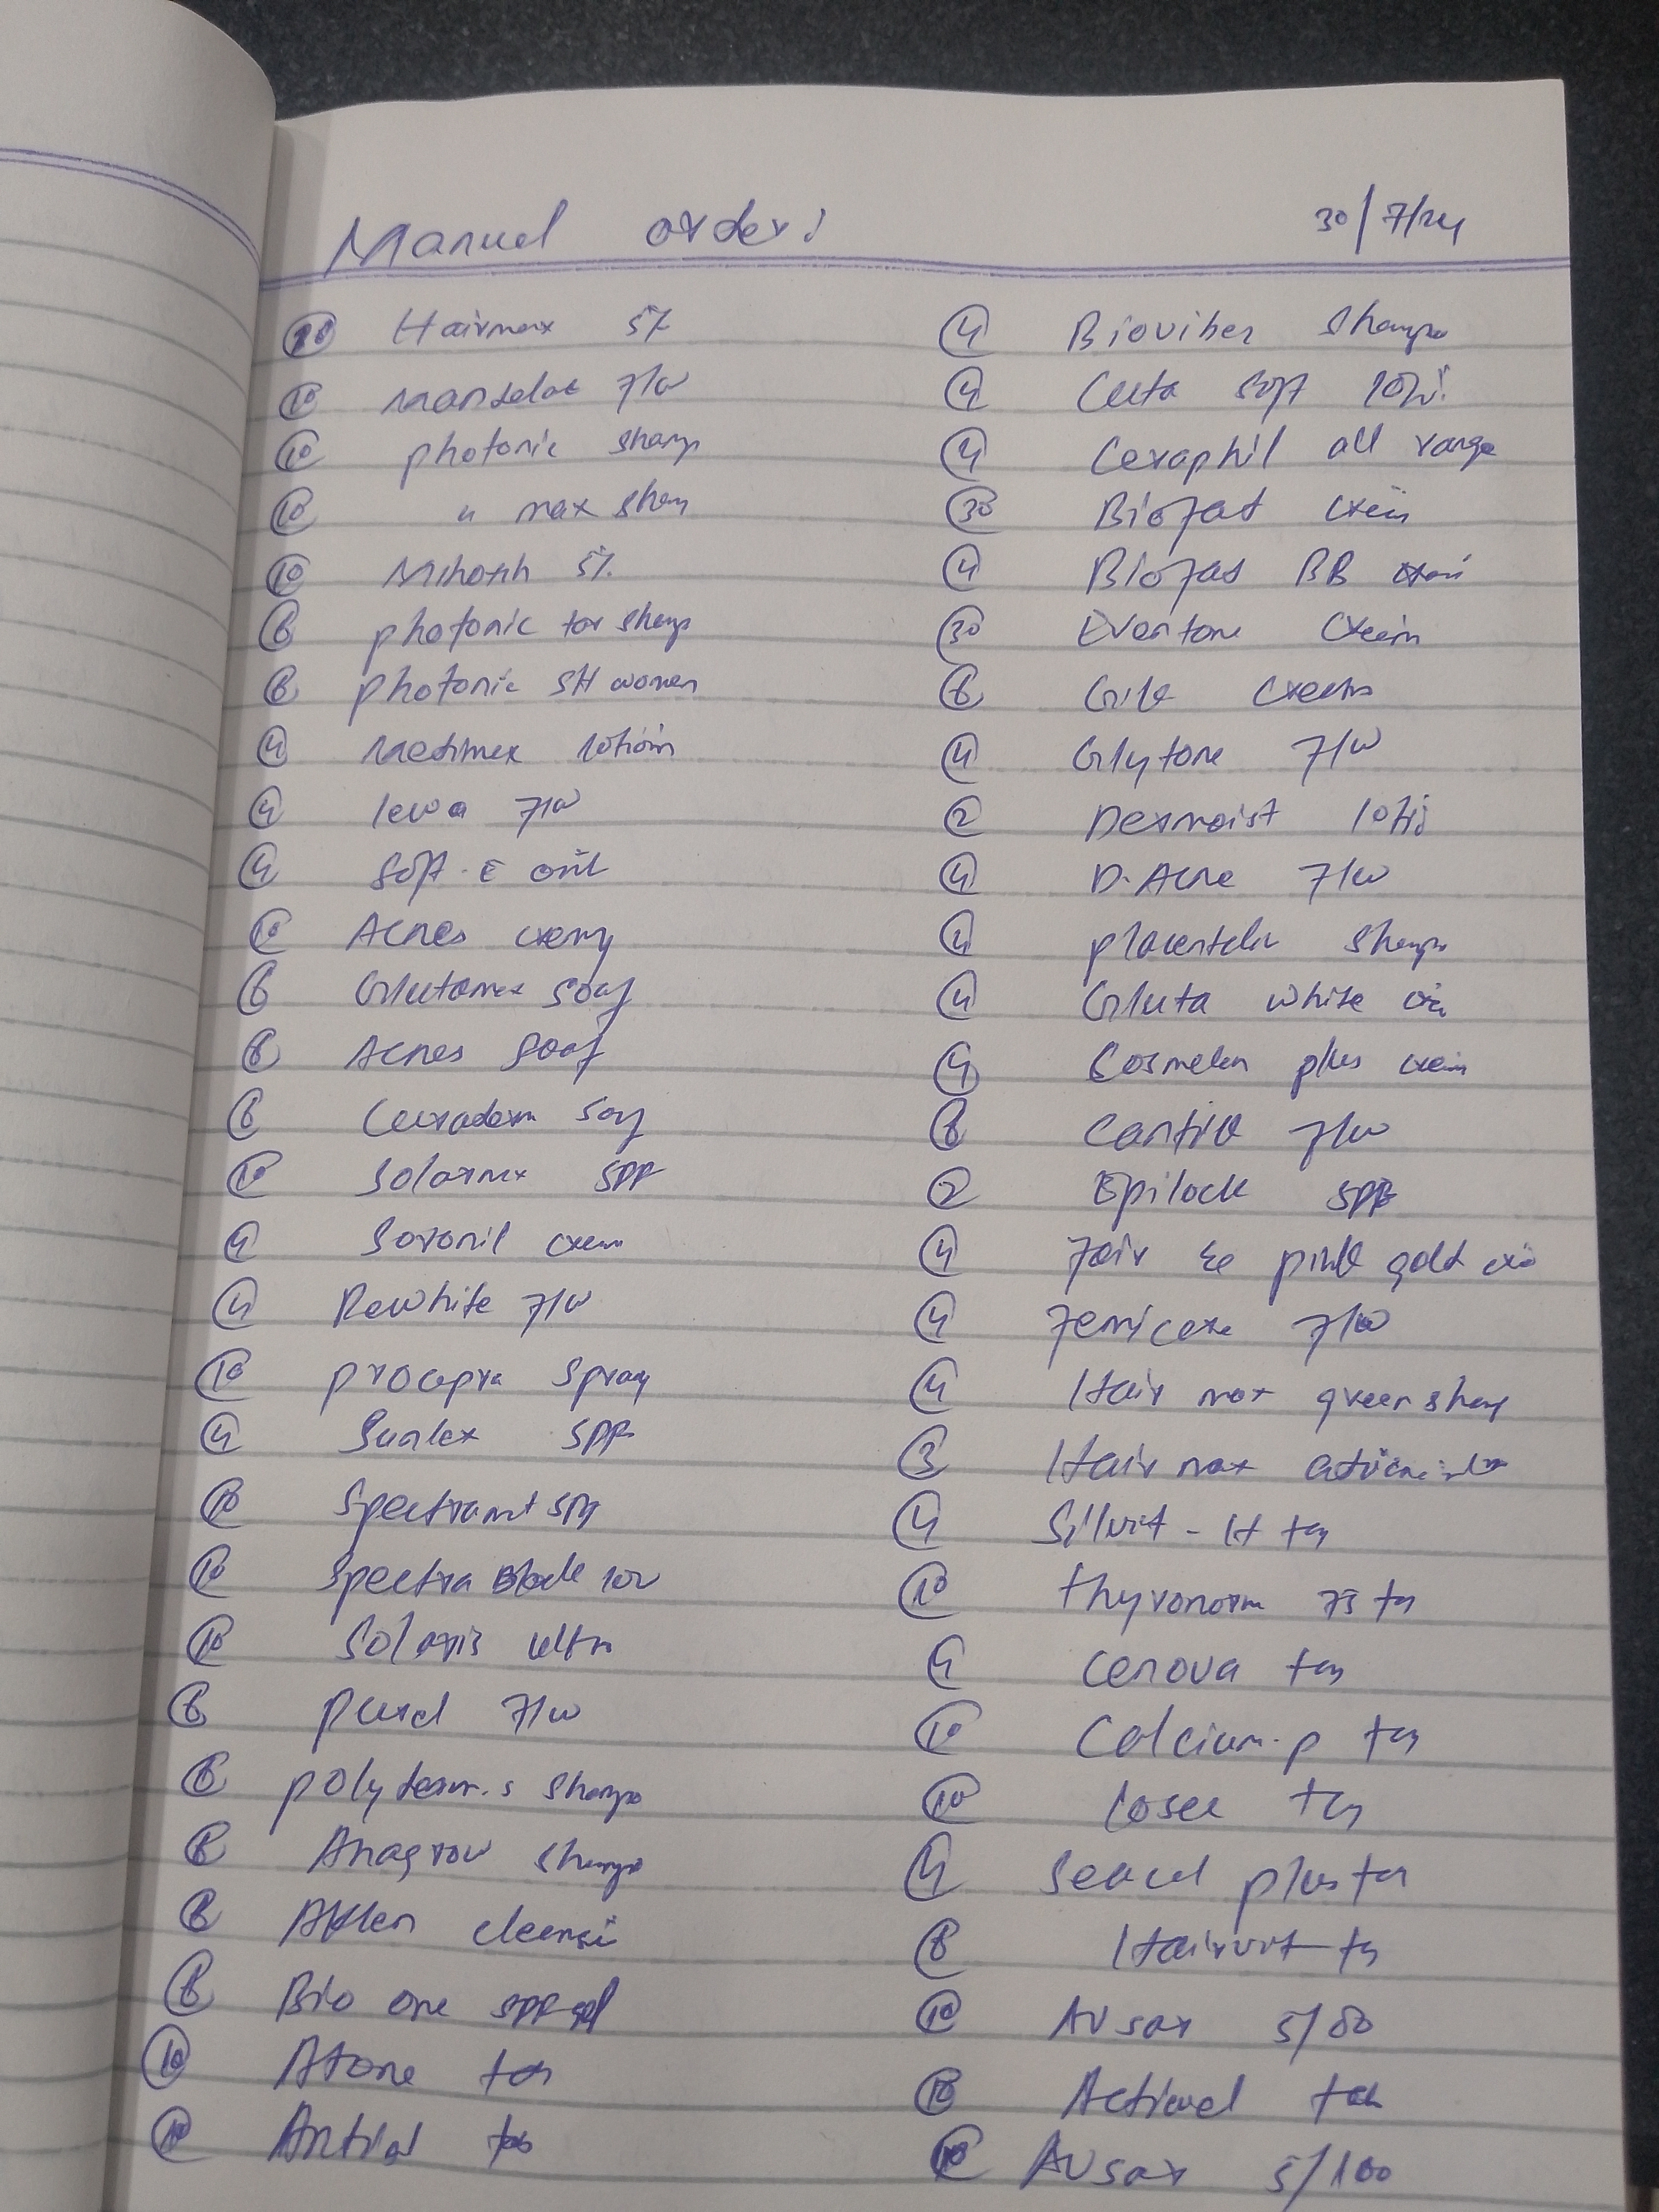 Manual order: 30/7/24
10 Hairmax 5%
10 Mandelac F/W
10 photonic shamp
10 " max sham
10 5%
6 photonic tar shamp
6 photonic SH women
4 Medimax lotion
4 F/W
4 Soft-E oil
10 Acnes cream
6 Glutamax soap
6 Acnes soap
6 Curaderm soap
10 Solarmax SPF
4 Soronil cream
4 Rewhite F/W
10 procapra spray
4 Sunlex SPF
10
10 Spectra Block
10 Solaris ultra
6 F/W
6 polyderm.s shampo
6 Anagrow shampo
6 cleansi
6 Bio one SPF gel
10 Atone tab
10 Antial tab
4 shampo
4 Cuta soft loti
4 Ceraphil all range
30 Biofad cream
4 Biofad BB cream
30 Eventone cream
6 cream
4 Glytone F/W
2 Dermoist loti
4 D-Acne F/W
4 placentin shampo
4 Gluta white cre
4 Cosmelan plus cream
6 F/W
2 Epilock SPF
4 Fair & pink gold cre
4 Femicare F/W
4 Hair max green sham
3 Hair max
4 Silvit-H tab
10 thyronorm 75 tab
4 Cenova tab
10 Calcium.p tab
10 Losec tab
4 Seacal plus tab
6 Hairvit tab
10 Avsar 5/80
10 Actiwel tab
10 Avsar 5/160